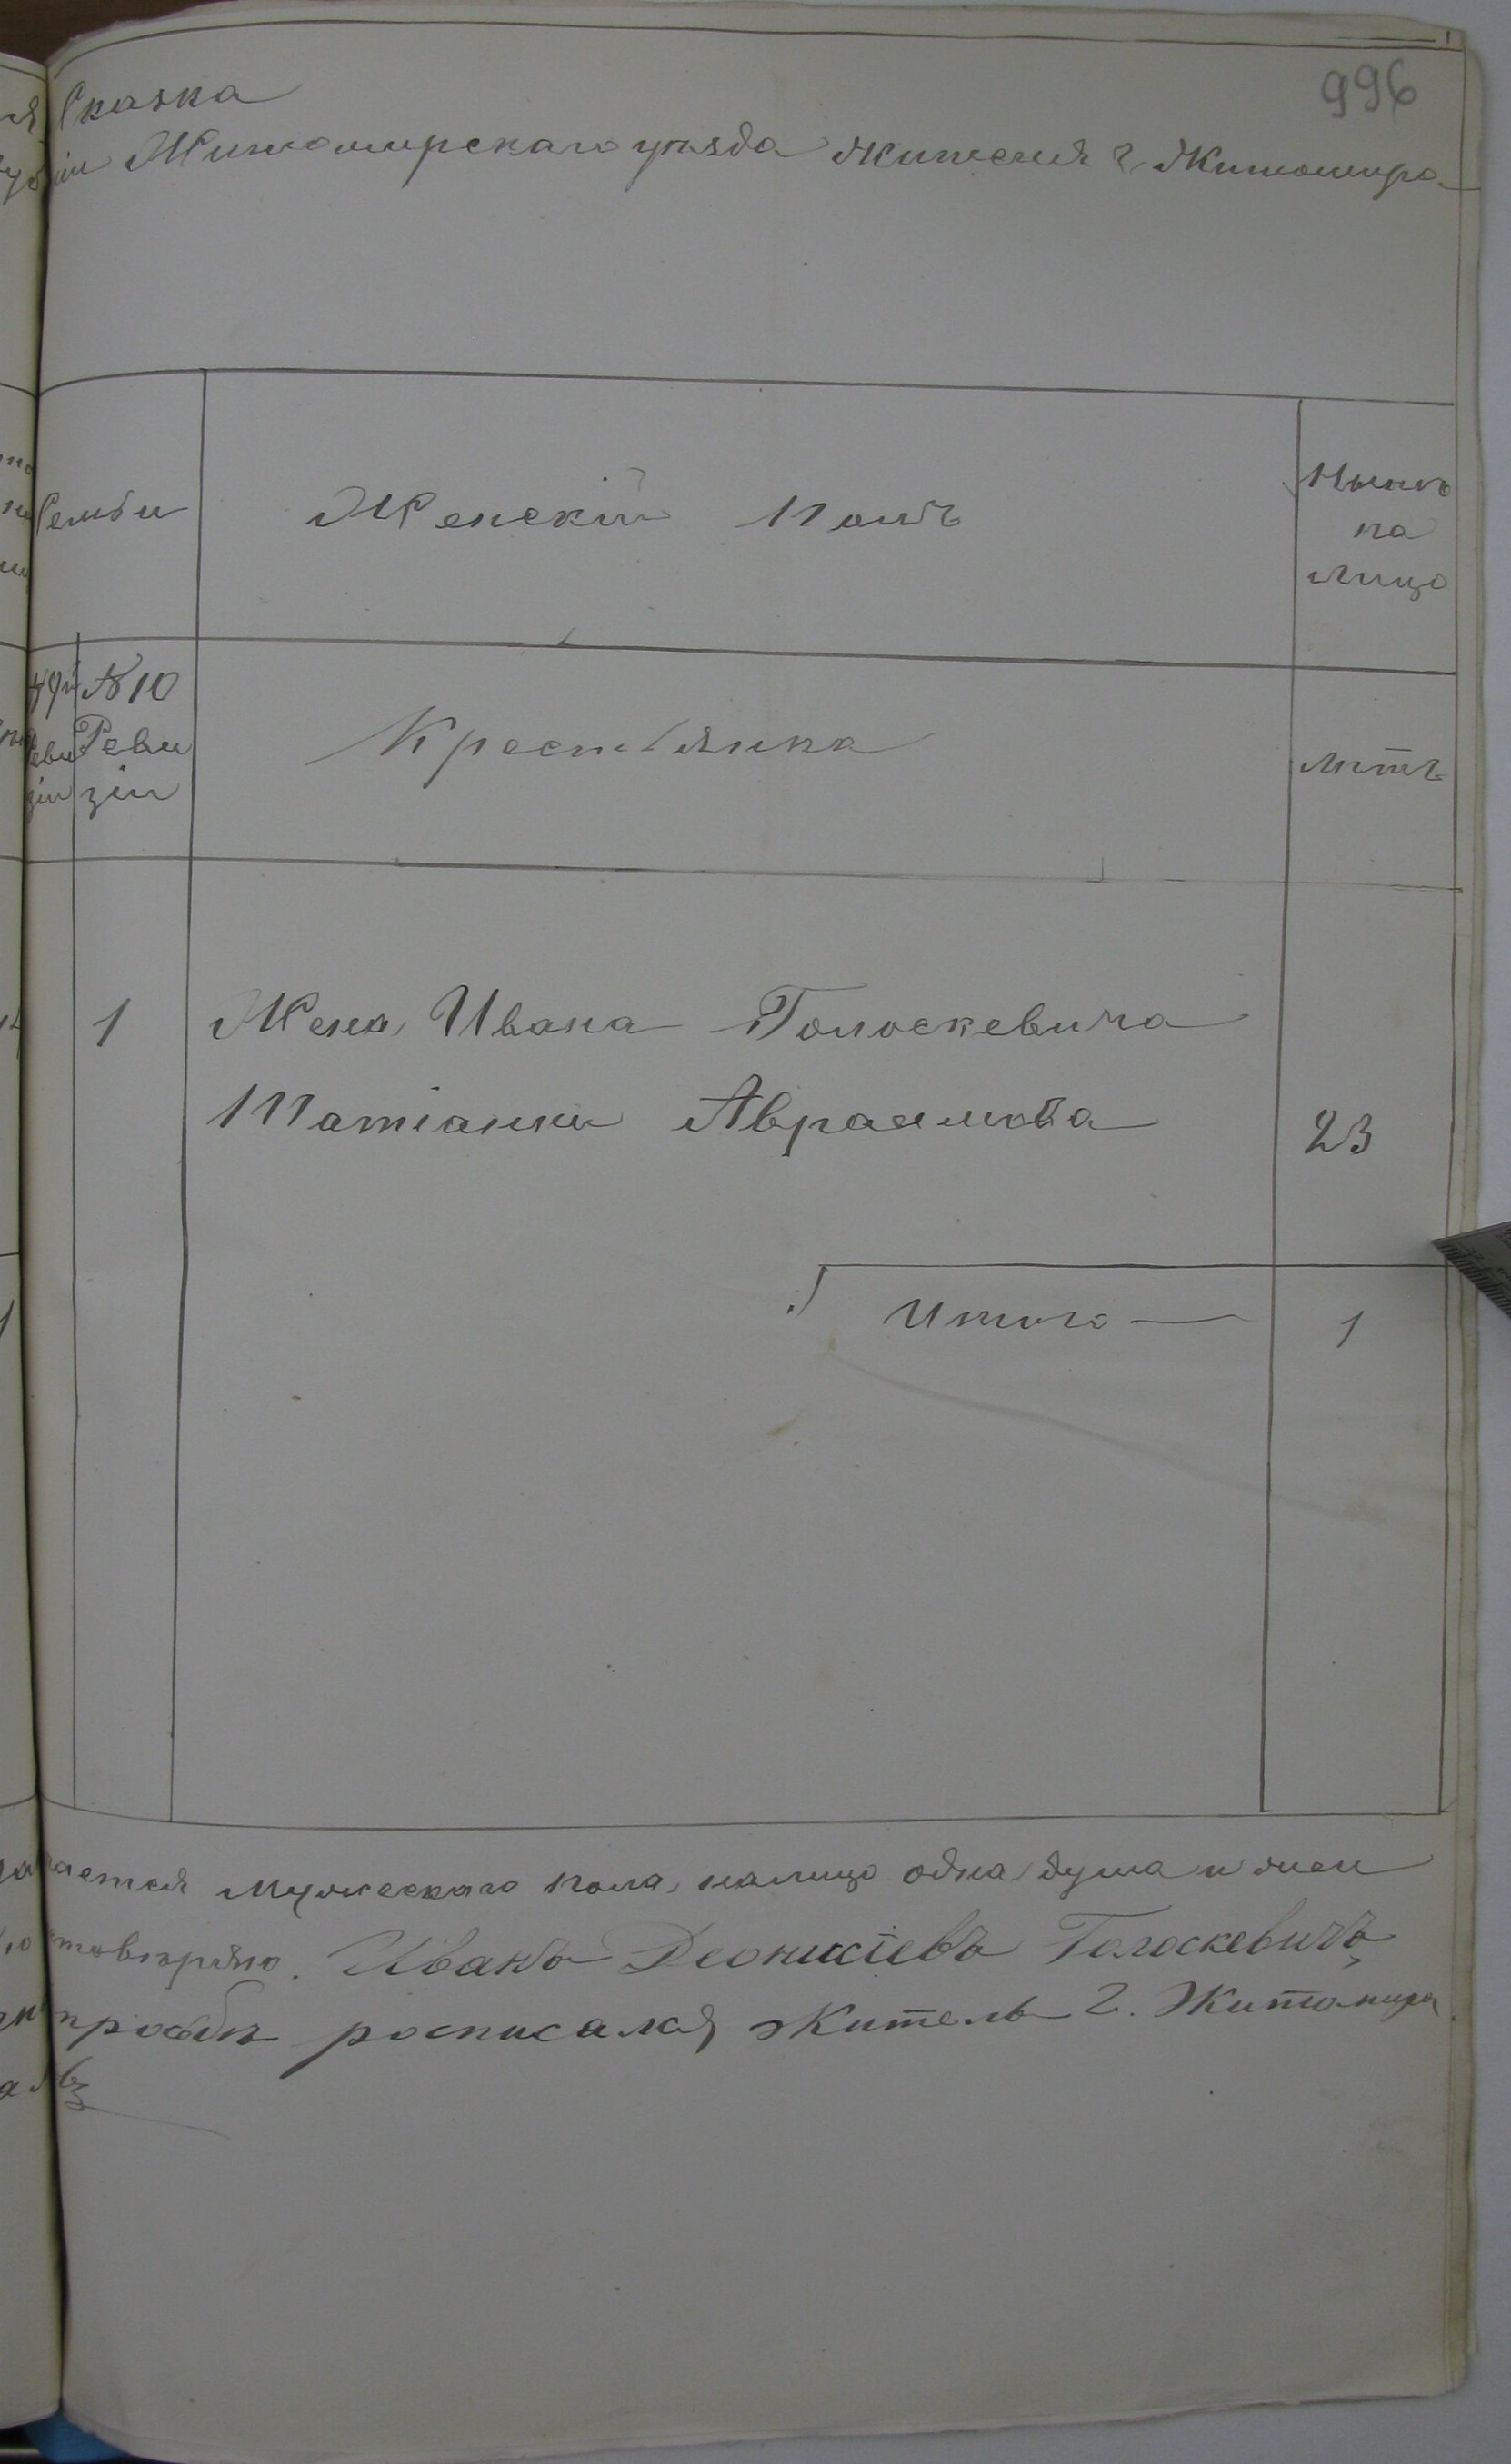 996
Сказка
іи Житомирскаго уѣзда жителя г. Житомира
Семьи
Женскій полъ
Нынѣ
на
лицо
№ 10
Реви
зіи
Реви
зіи
Крестьянка
лѣтъ
1
Жена Ивана Голоскевича
Татіанна Авраамова
23
Итого —
1
ается мужескаго пола, налицо одна душа и жен
товѣрено. Иванъ Деонисіевъ Голоскевичъ,
просьбѣ росписался житель г. Житомира